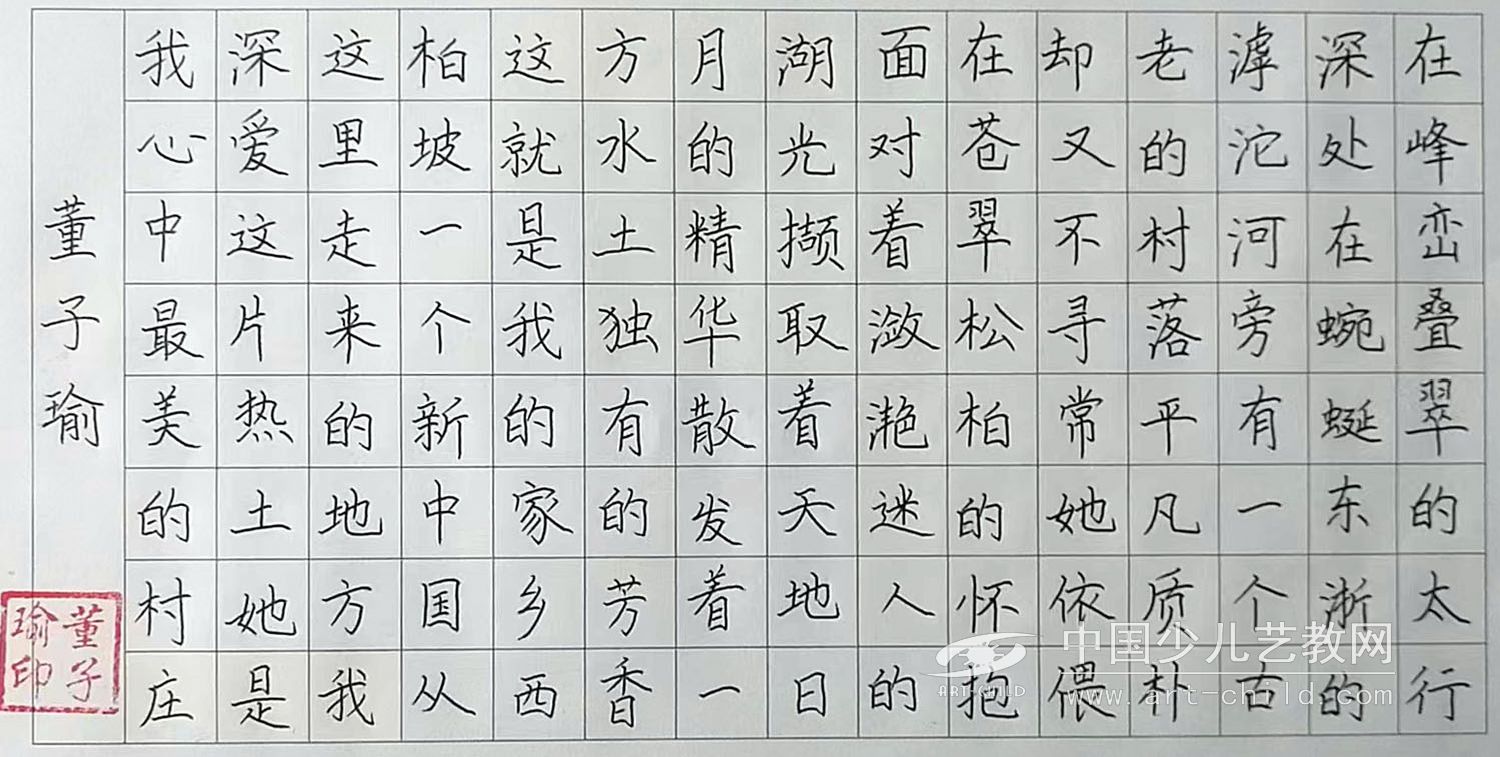 在峰峦叠翠的太行
深处在蜿蜒东淅的
滹沱河旁有一个古
老的村落平凡质朴
却又不寻常她依偎
在苍翠松柏的怀抱
面对着潋滟迷人的
湖光撷取着天地日
月的精华散发着一
方水土独有的芳香
这就是我的家乡西
柏坡一个新中国从
这里走来的地方我
深爱这片热土她是
我心中最美的村庄
董子瑜
董子瑜印
中国少儿艺教网
ART-CHILD
www.art-child.com